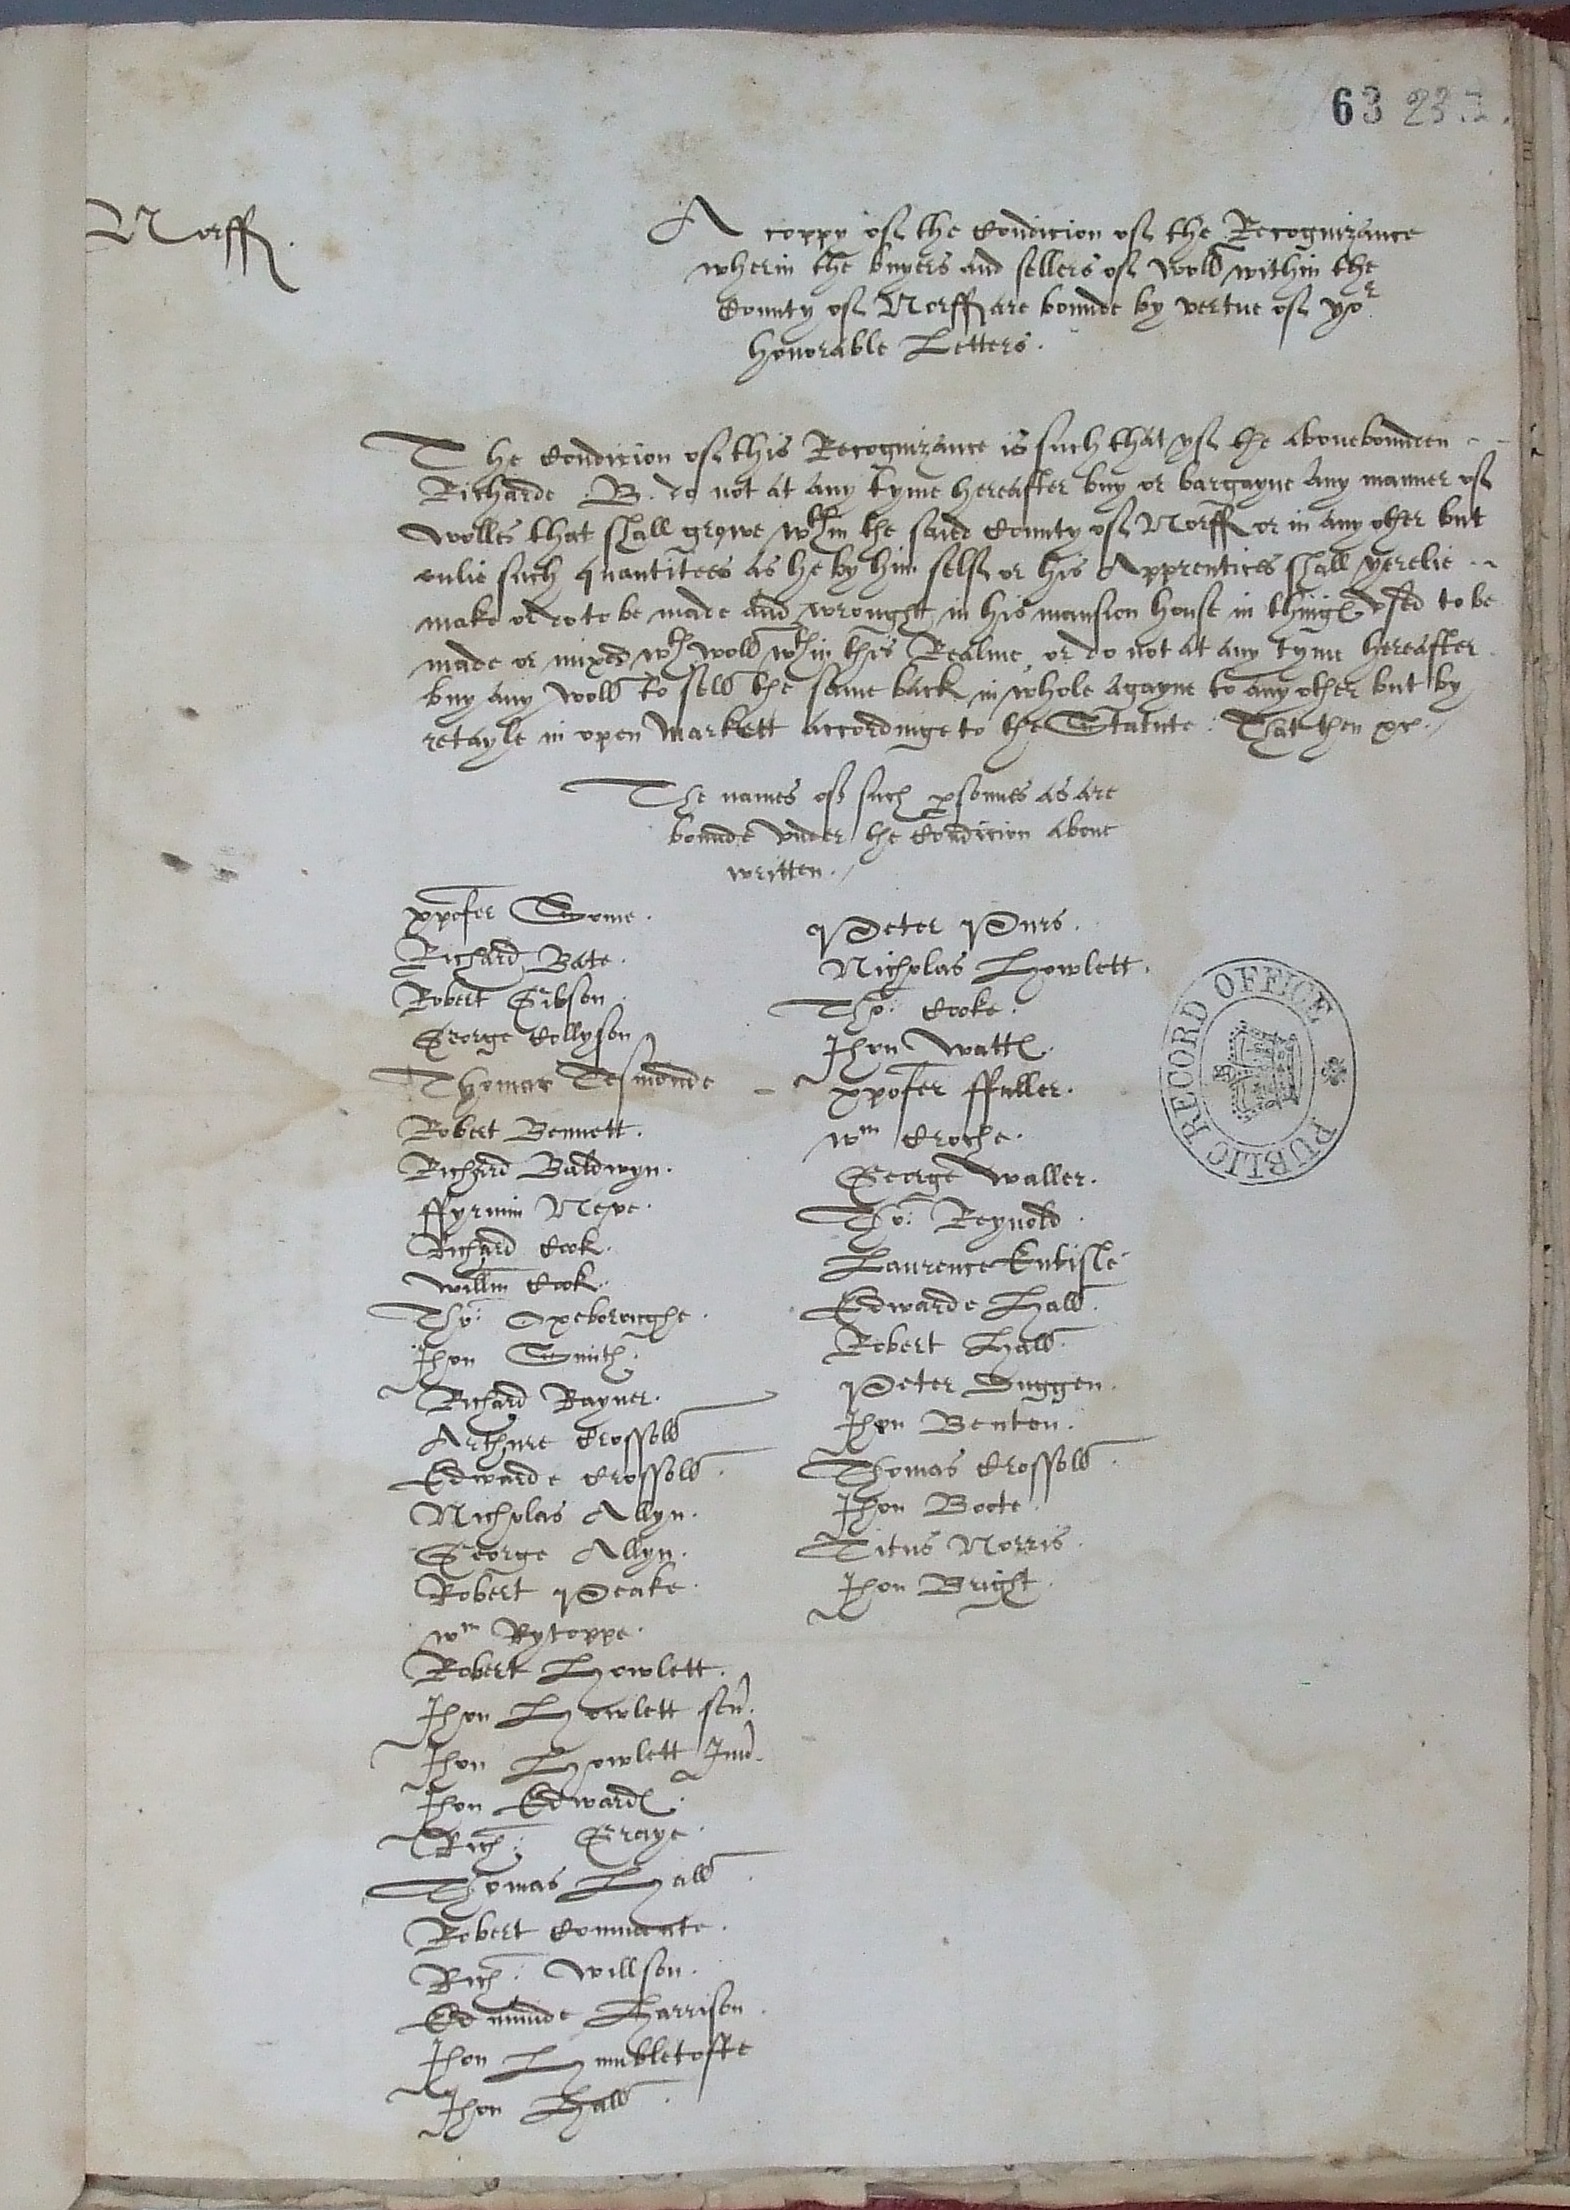 63 23.1.
Norff.
A coppy of the Condicion of the Recognizance
wherin the buyers and sellers of woll within the
County of Norff are bounde by vertue of yor
honorable Letters.
The Condicion of this Recognizance is such that yf the abovebounden
Richarde .B. do not at any tyme hereafter buy or bargayne any manner of
wolles that shall growe wthin the saied County of Norff or in any other but
onlie such quantitees as he by him self or his Apprentices shall yerelie
make or do to be made and wrought in his mansion house in thinges used to be
made or mixed wth woll wthin this Realme, or do not at any tyme hereafter
buy any woll to sell the same back in whole agayne to any other but by
retayle in open Markett accordinge to the Statute: That then &c.
The names of such psonnes as are
bounde vnder the Condicion above
written.
xpofer Some.
Richard Bate.
Robert Gibson.
George Collyson
Thomas Desmonde
Robert Bennett.
Richard Baldwyn.
ffyrmin Neve.
Richard Cook.
Willm Cook.
Tho: Oxeborowghe.
Jhon Smith.
Richard Rayner.
Arthure Crossoll
Edwarde Crossoll.
Nicholas Allyn.
George Allyn.
Robert Peake.
Wm Rytoppe.
Robert Howlett.
Jhon Howlett sen.
Jhon Howlett Jun.
Jhon Edwardes.
Rich: Graye.
Thomas Hall.
Robert
Rich: Willson.
Edmunde Harrison.
Jhon Humbletofte
Jhon Hall.
Peter Purs.
Nicholas Howlett.
Tho: Cooke.
Jhon Wattes.
xpofer ffuller.
Wm Croche.
George Waller.
Tho: Reynold.
Laurence Entisle
Edwarde Hall.
Robert Hall.
Peter Duggen.
Jhon Benton.
Thomas Crossoll.
Jhon Boote.
Titus Norris.
Jhon Bright.
PUBLIC RECORD OFFICE